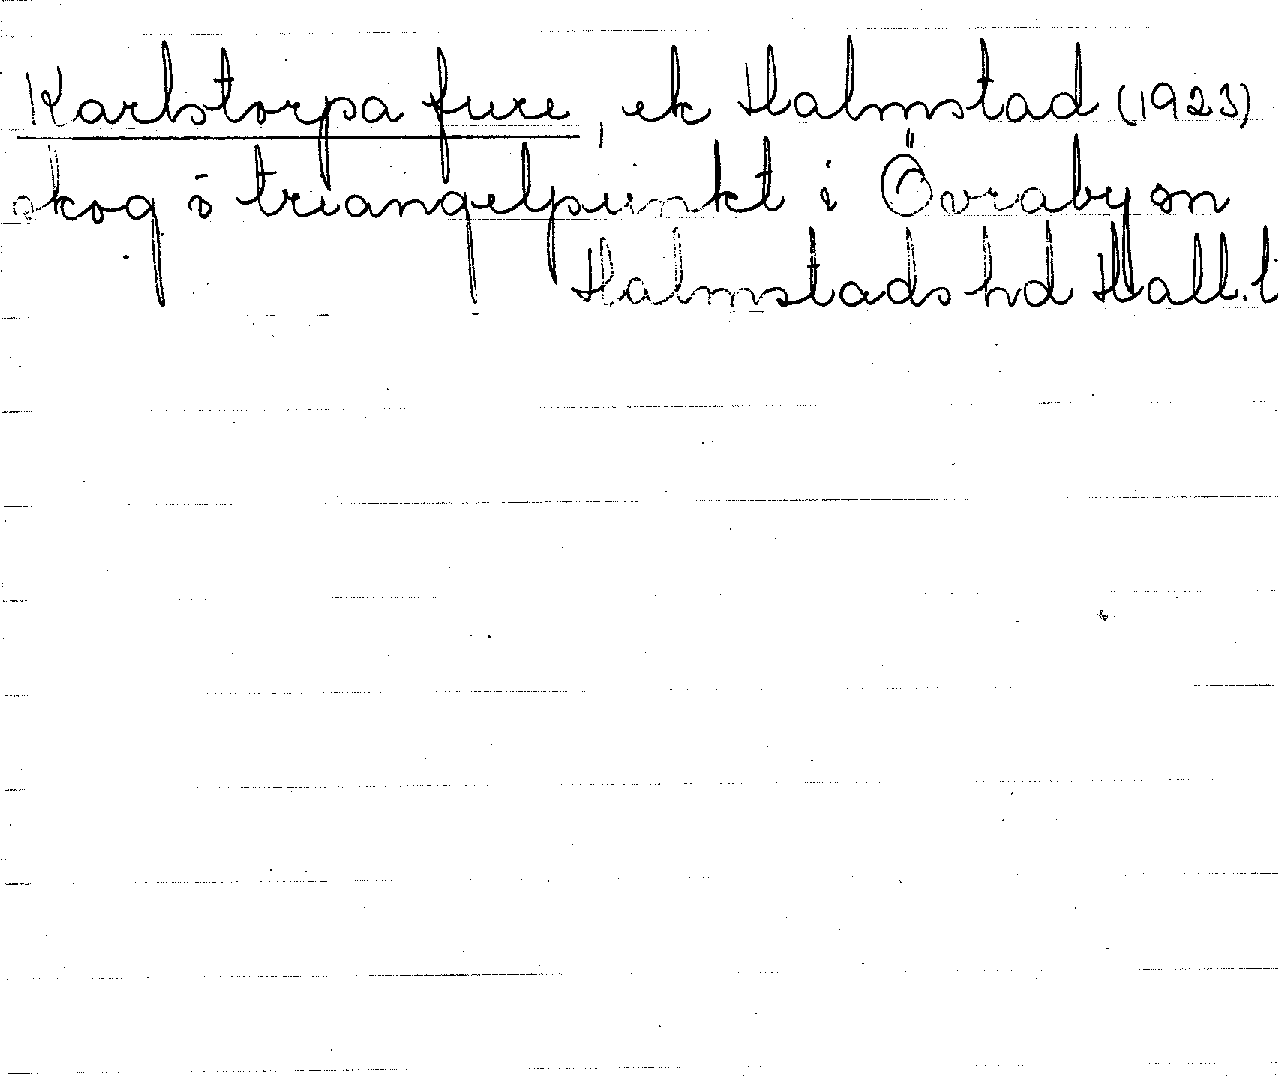 Karlstorpa fure, ek Halmstad (1923)
skog ö triangelpunkt i Övraby sn
Halmstads hd Hall. l